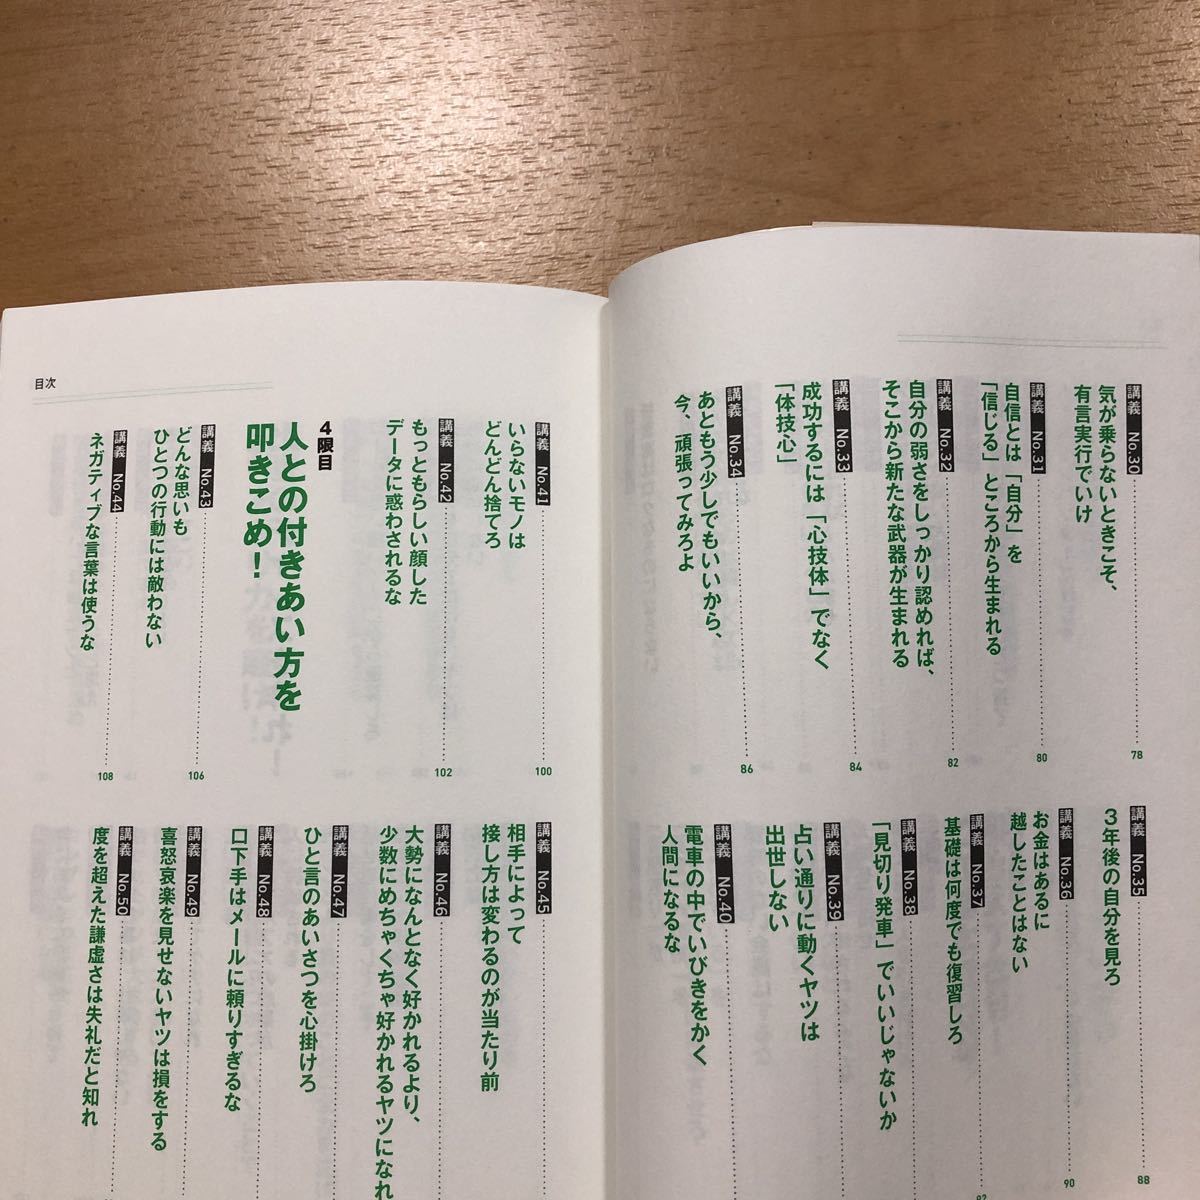 講義 No.30
気が乗らないときこそ、
有言実行でいけ
78
講義 No.31
自信とは「自分」を
「信じる」ところから生まれる
80
講義 No.32
自分の弱さをしっかり認めれば、
そこから新たな武器が生まれる
82
講義 No.33
成功するには「心技体」でなく
「体技心」
84
講義 No.34
あともう少しでもいいから、
今、頑張ってみろよ
86
講義 No.35
3年後の自分を見ろ
88
講義 No.36
お金はあるに
越したことはない
90
講義 No.37
基礎は何度でも復習しろ
講義 No.38
「見切り発車」でいいじゃないか
講義 No.39
占い通りに動くヤツは
出世しない
講義 No.40
電車の中でいびきをかく
人間になるな
目次
講義 No.41
いらないモノは
どんどん捨てろ
100
講義 No.42
もっともらしい顔した
データに惑わされるな
102
4限目
人との付きあい方を
叩きこめ!
講義 No.43
どんな思いも
ひとつの行動には敵わない
106
講義 No.44
ネガティブな言葉は使うな
108
講義 No.45
相手によって
接し方は変わるのが当たり前
講義 No.46
大勢になんとなく好かれるより、
少数にめちゃくちゃ好かれるヤツになれ
講義 No.47
ひと言のあいさつを心掛けろ
講義 No.48
口下手はメールに頼りすぎるな
講義 No.49
喜怒哀楽を見せないヤツは損をする
講義 No.50
度を超えた謙虚さは失礼だと知れ